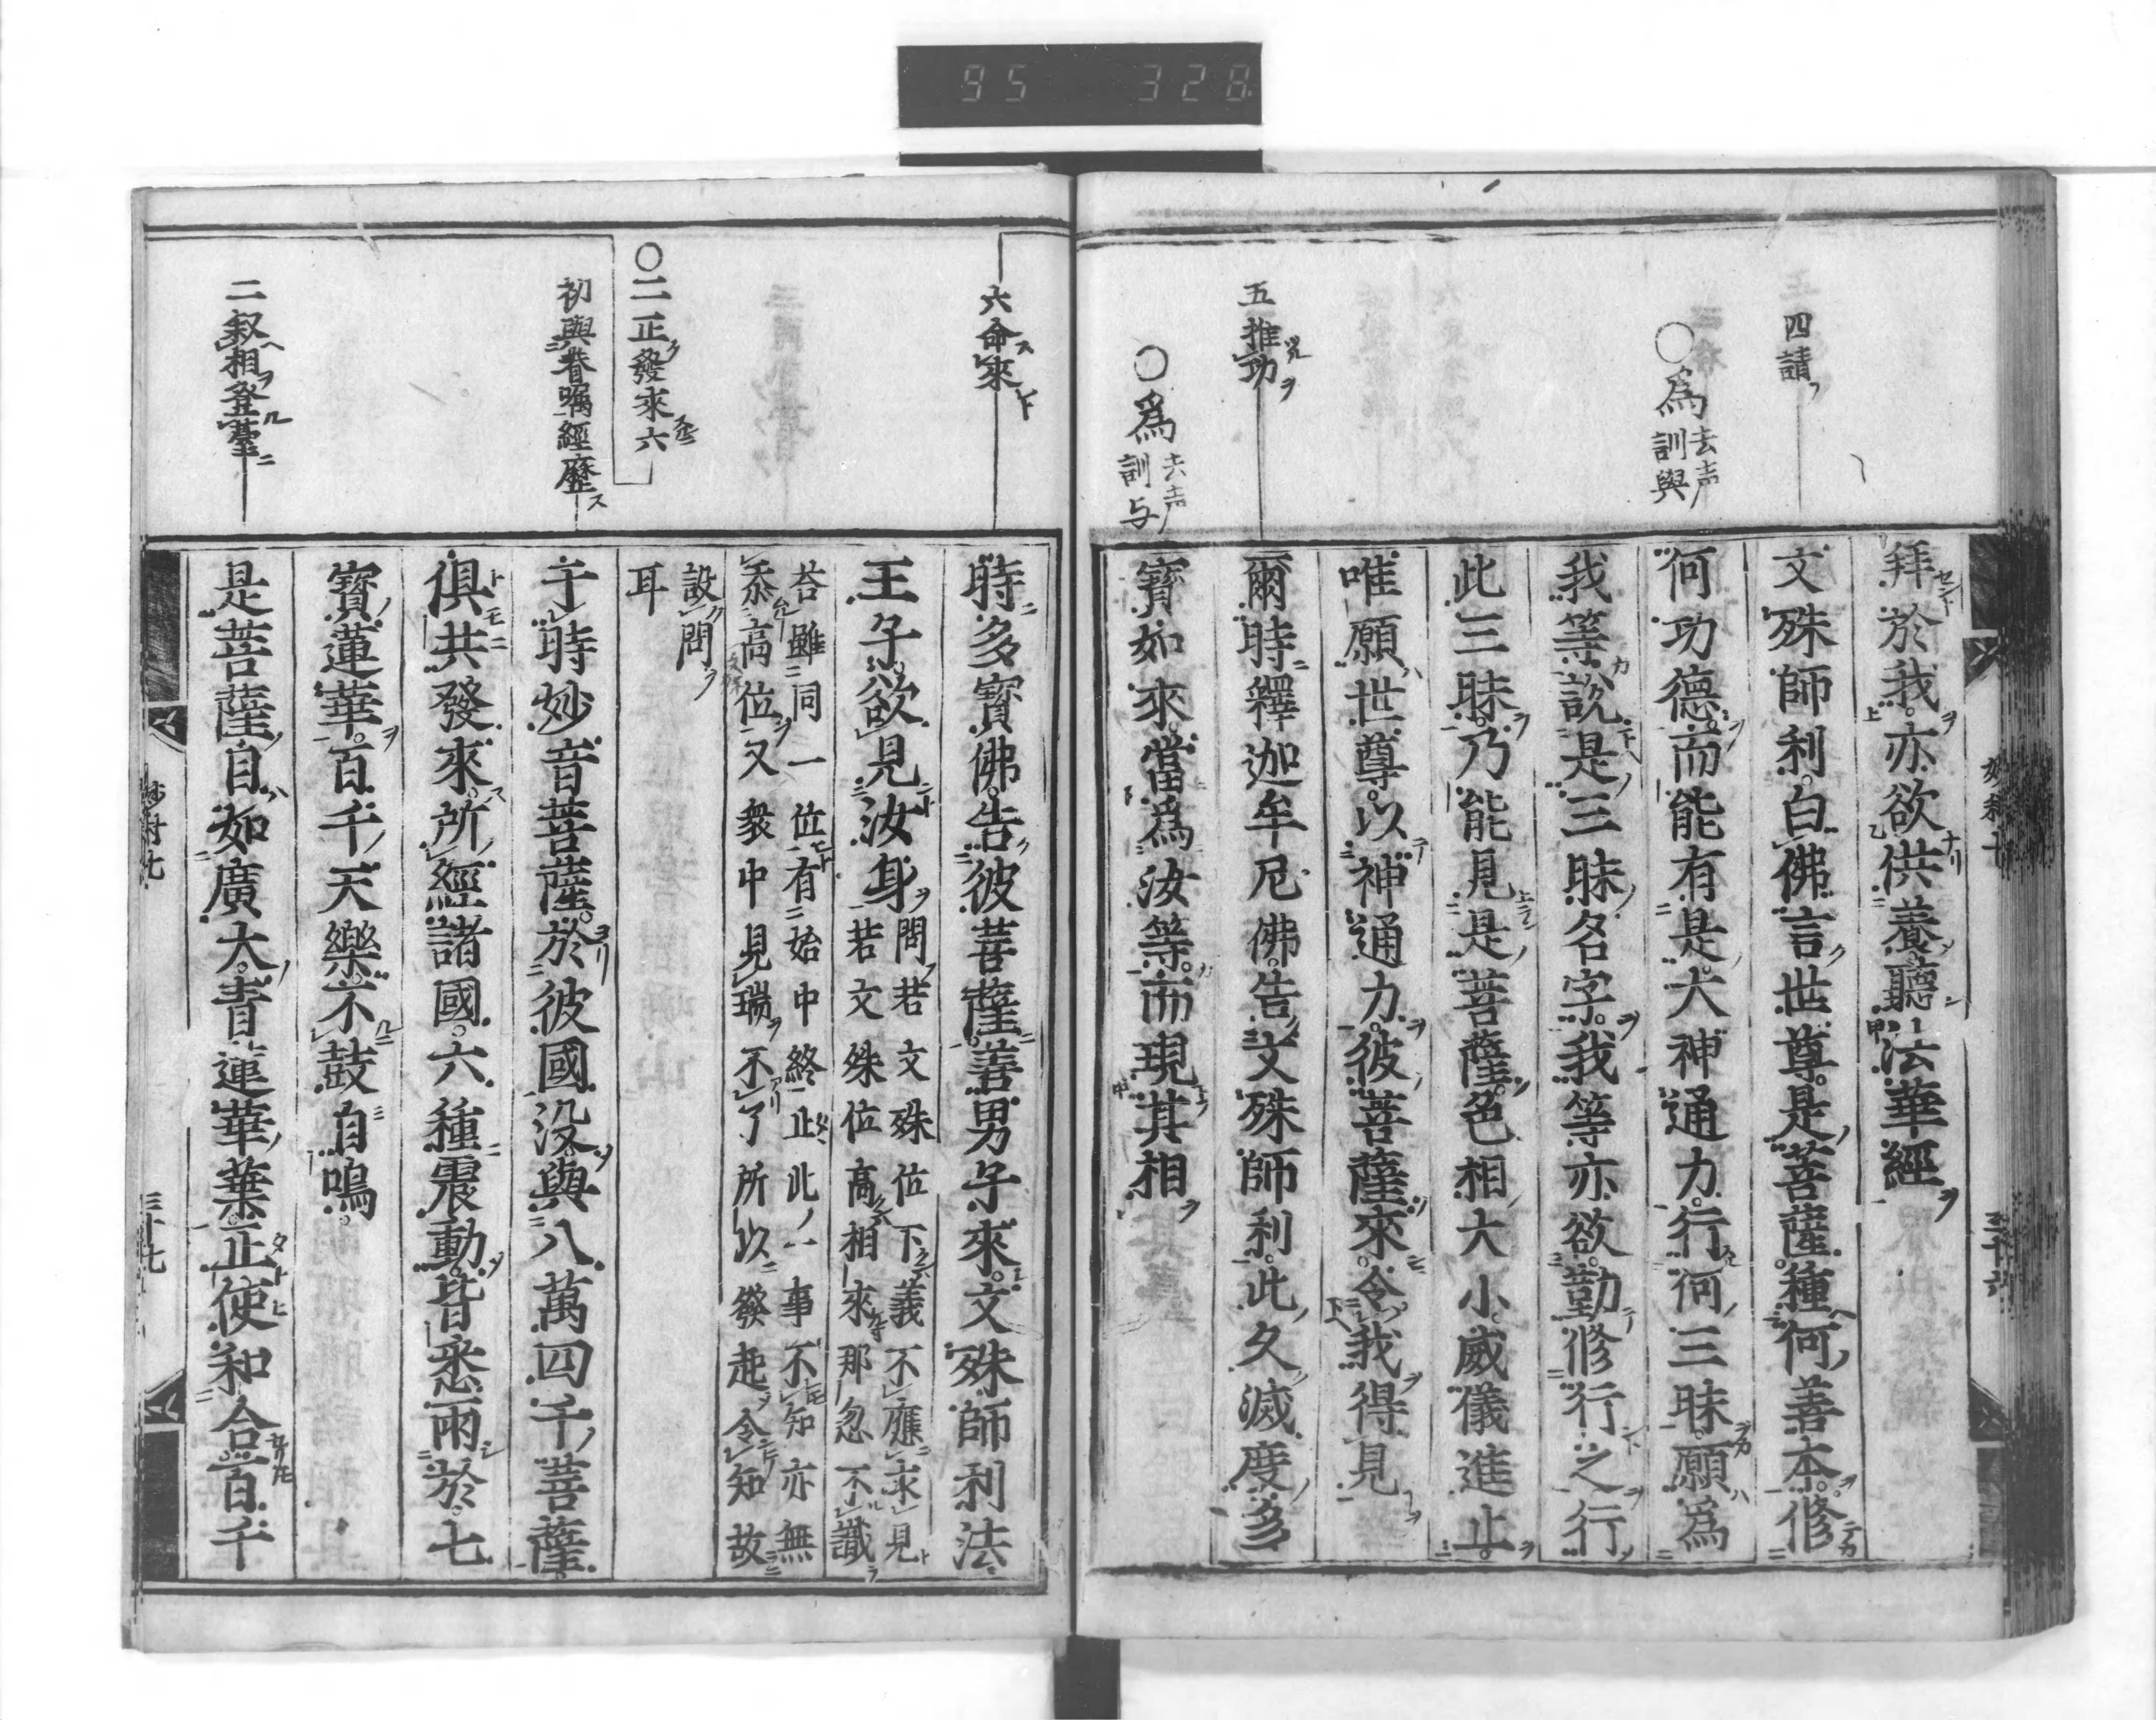 95 328
四請
○爲去声訓與
五推功
○爲去声訓与
拜於我亦欲供養聽法華經
文殊師利白佛言世尊是菩薩種何善本修
何功德而能有是大神通力行何三昧願爲
我等說是三昧名字我等亦欲勤修行之行
此三昧乃能見是菩薩色相大小威儀進止
唯願世尊以神通力彼菩薩來令我得見
爾時釋迦牟尼佛告文殊師利此久滅度多
寶如來當爲汝等而現其相
六命來
○二正發來六
初與眷嘱經歷
二叙相登臺
時多寶佛告彼菩薩善男子來文殊師利法
王子欲見汝身
問若文殊位下義不應求見
若文殊位高相來那忽不識
荅雖同一位有始中終止此一事不知亦無
忝高位又衆中見瑞不了所以發起令知故
設問
耳
于時妙音菩薩於彼國沒與八萬四千菩薩
俱共發來所經諸國六種震動皆悉雨於七
寶蓮華百千天樂不鼓自鳴
是菩薩自如廣大青蓮華葉正使和合百千
三十七